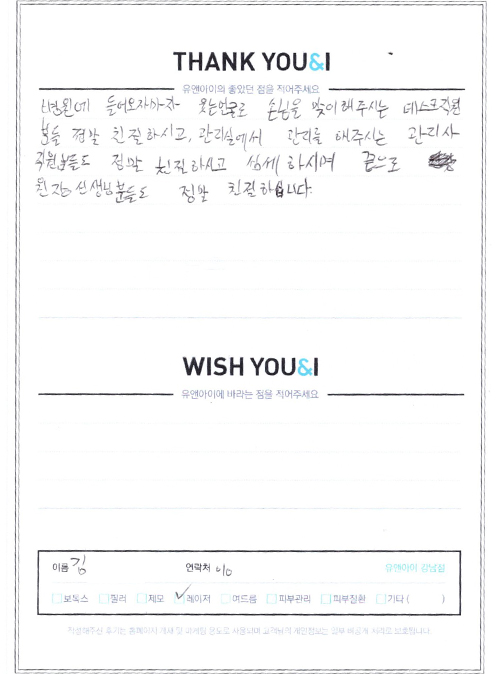 THANK YOU&I
유앤아이의 좋았던 점을 적어주세요
병원에 들어오자마자 웃는얼굴로 손님을 맞이해주시는 데스크직원
분들 정말 친절하시고, 관리실에서 관리를 해주시는 관리사
직원분들도 정말 친절하시고 섬세하시며 끝으로
원장 선생님분들도 정말 친절하십니다.
WISH YOU&I
유앤아이에 바라는 점을 적어주세요
이름 김 연락처 010 유앤아이 강남점
보톡스 필러 제모 레이저 여드름 피부관리 피부질환 기타 ( )
작성해주신 후기는 홈페이지 게재 및 마케팅 용도로 사용되며 고객님의 개인정보는 전부 비공개 처리로 보호됩니다.